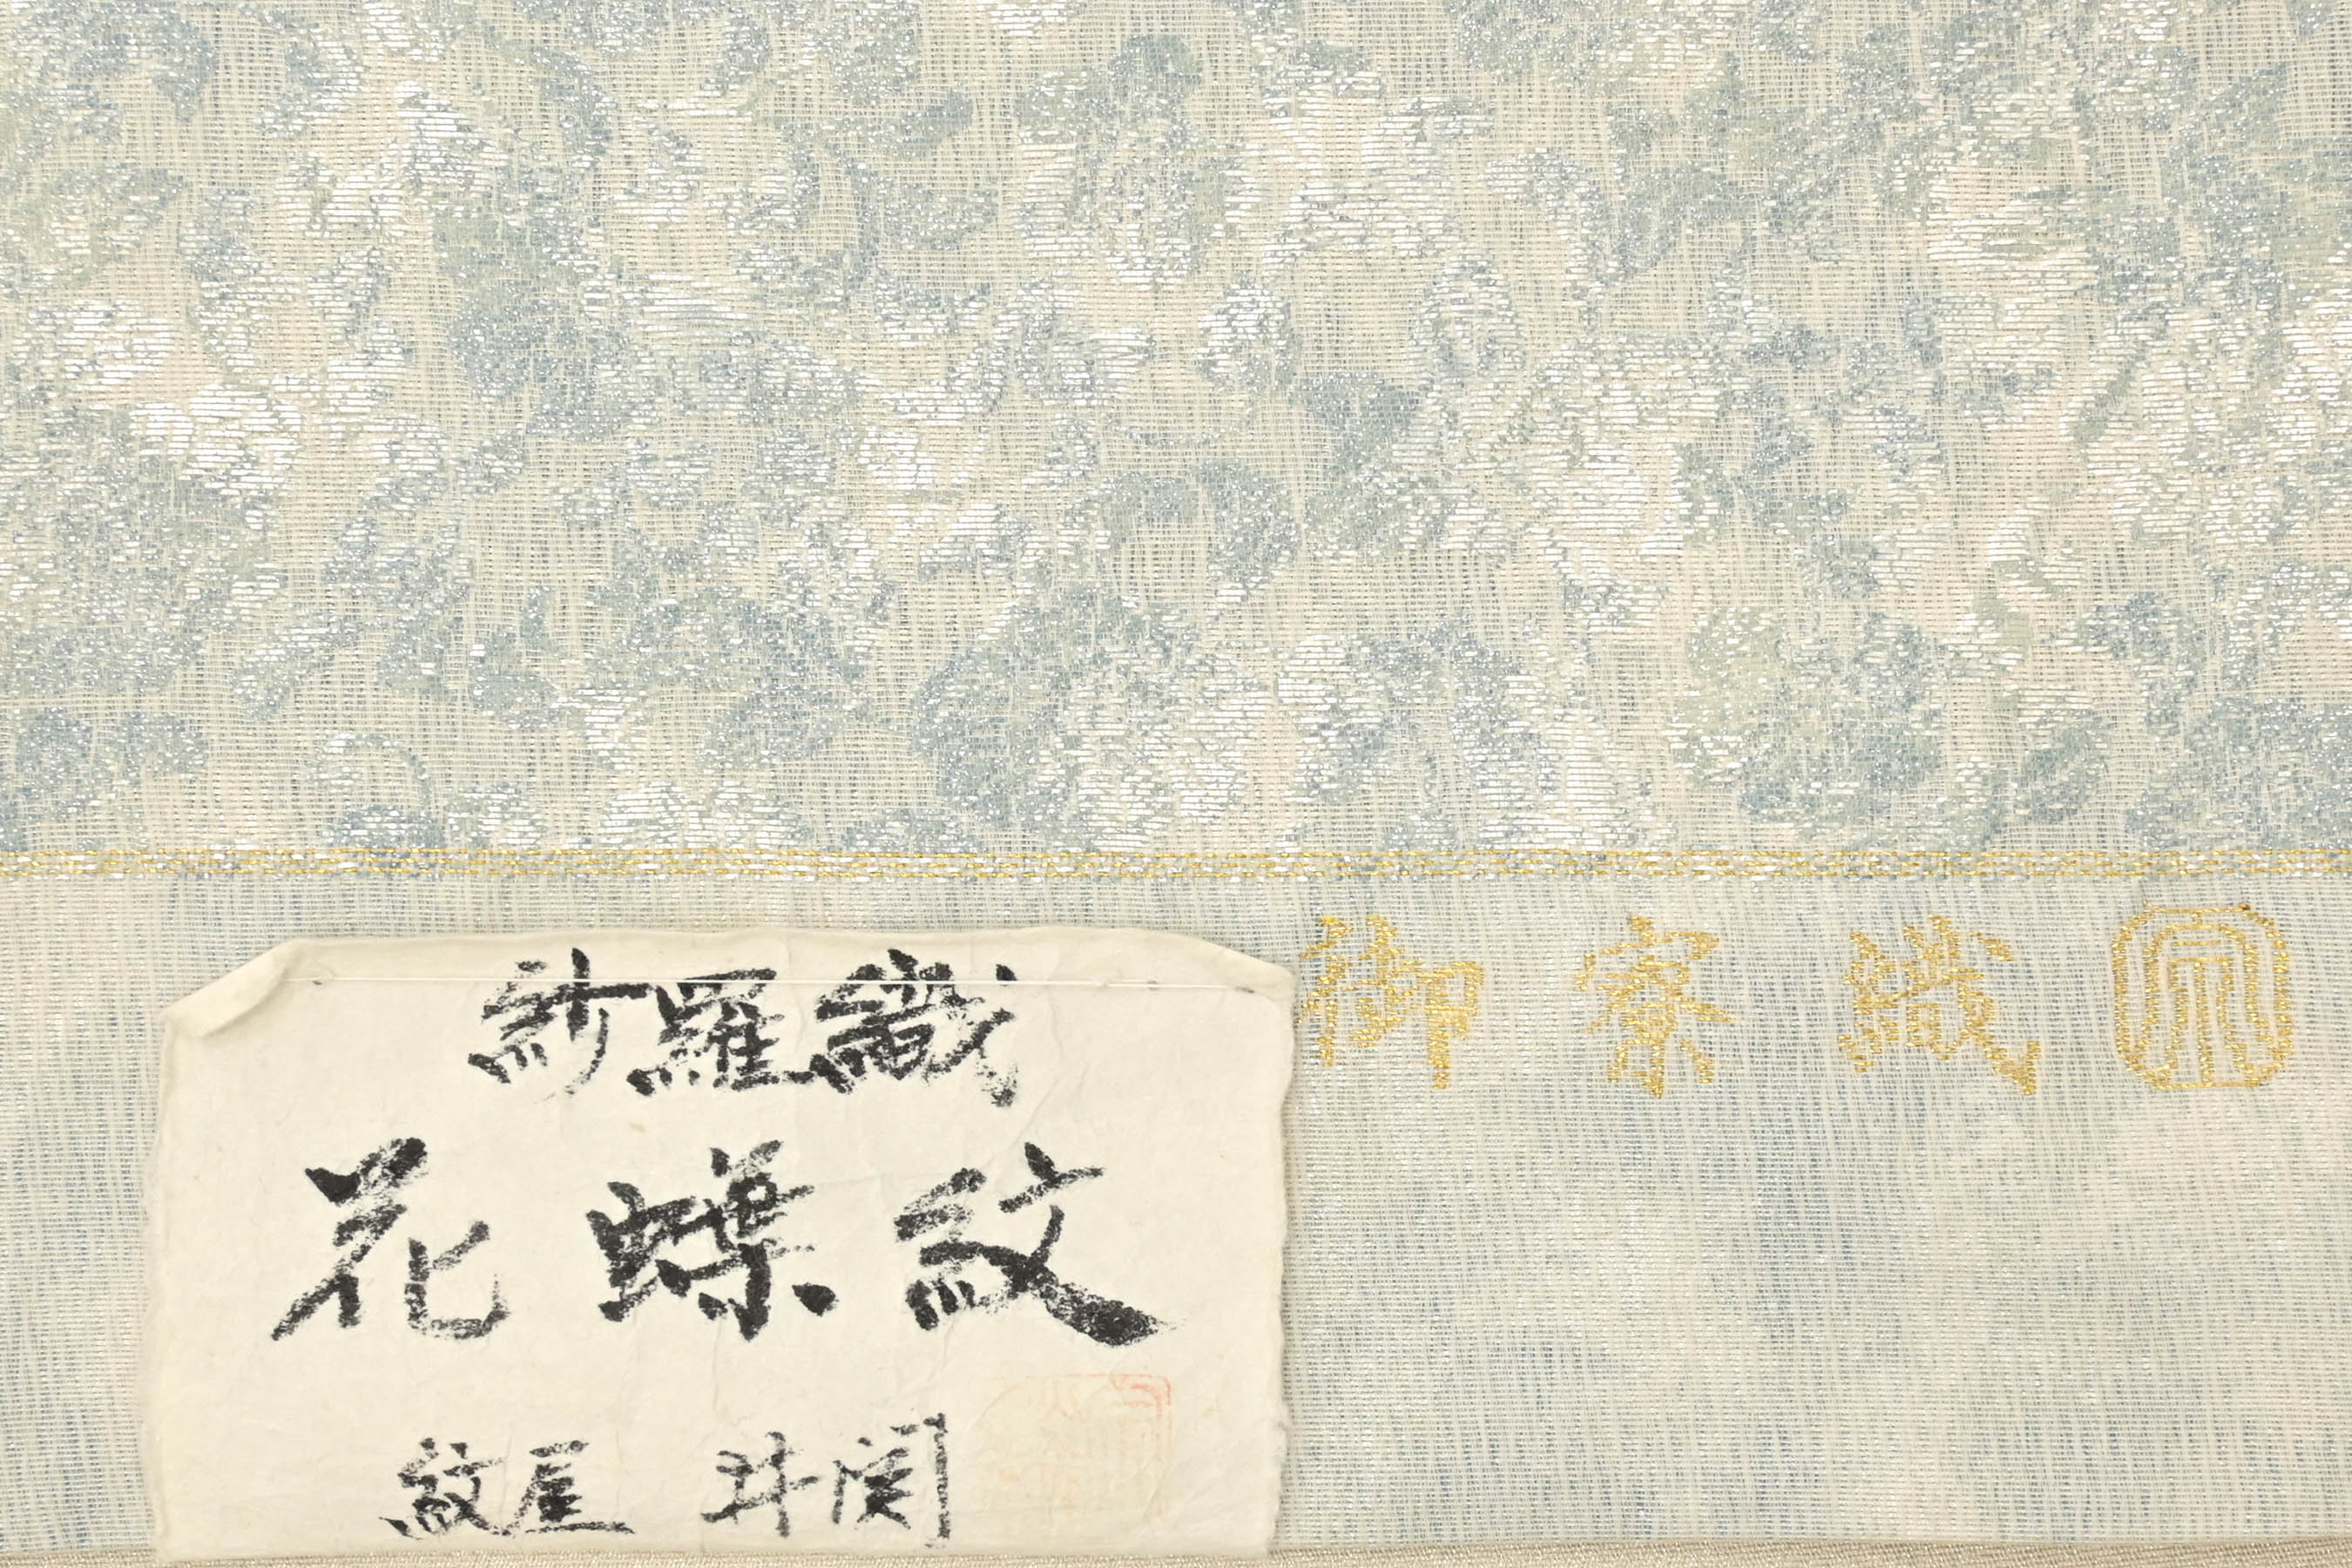 紗羅織
花蝶紋
紋屋 井関
御寮織